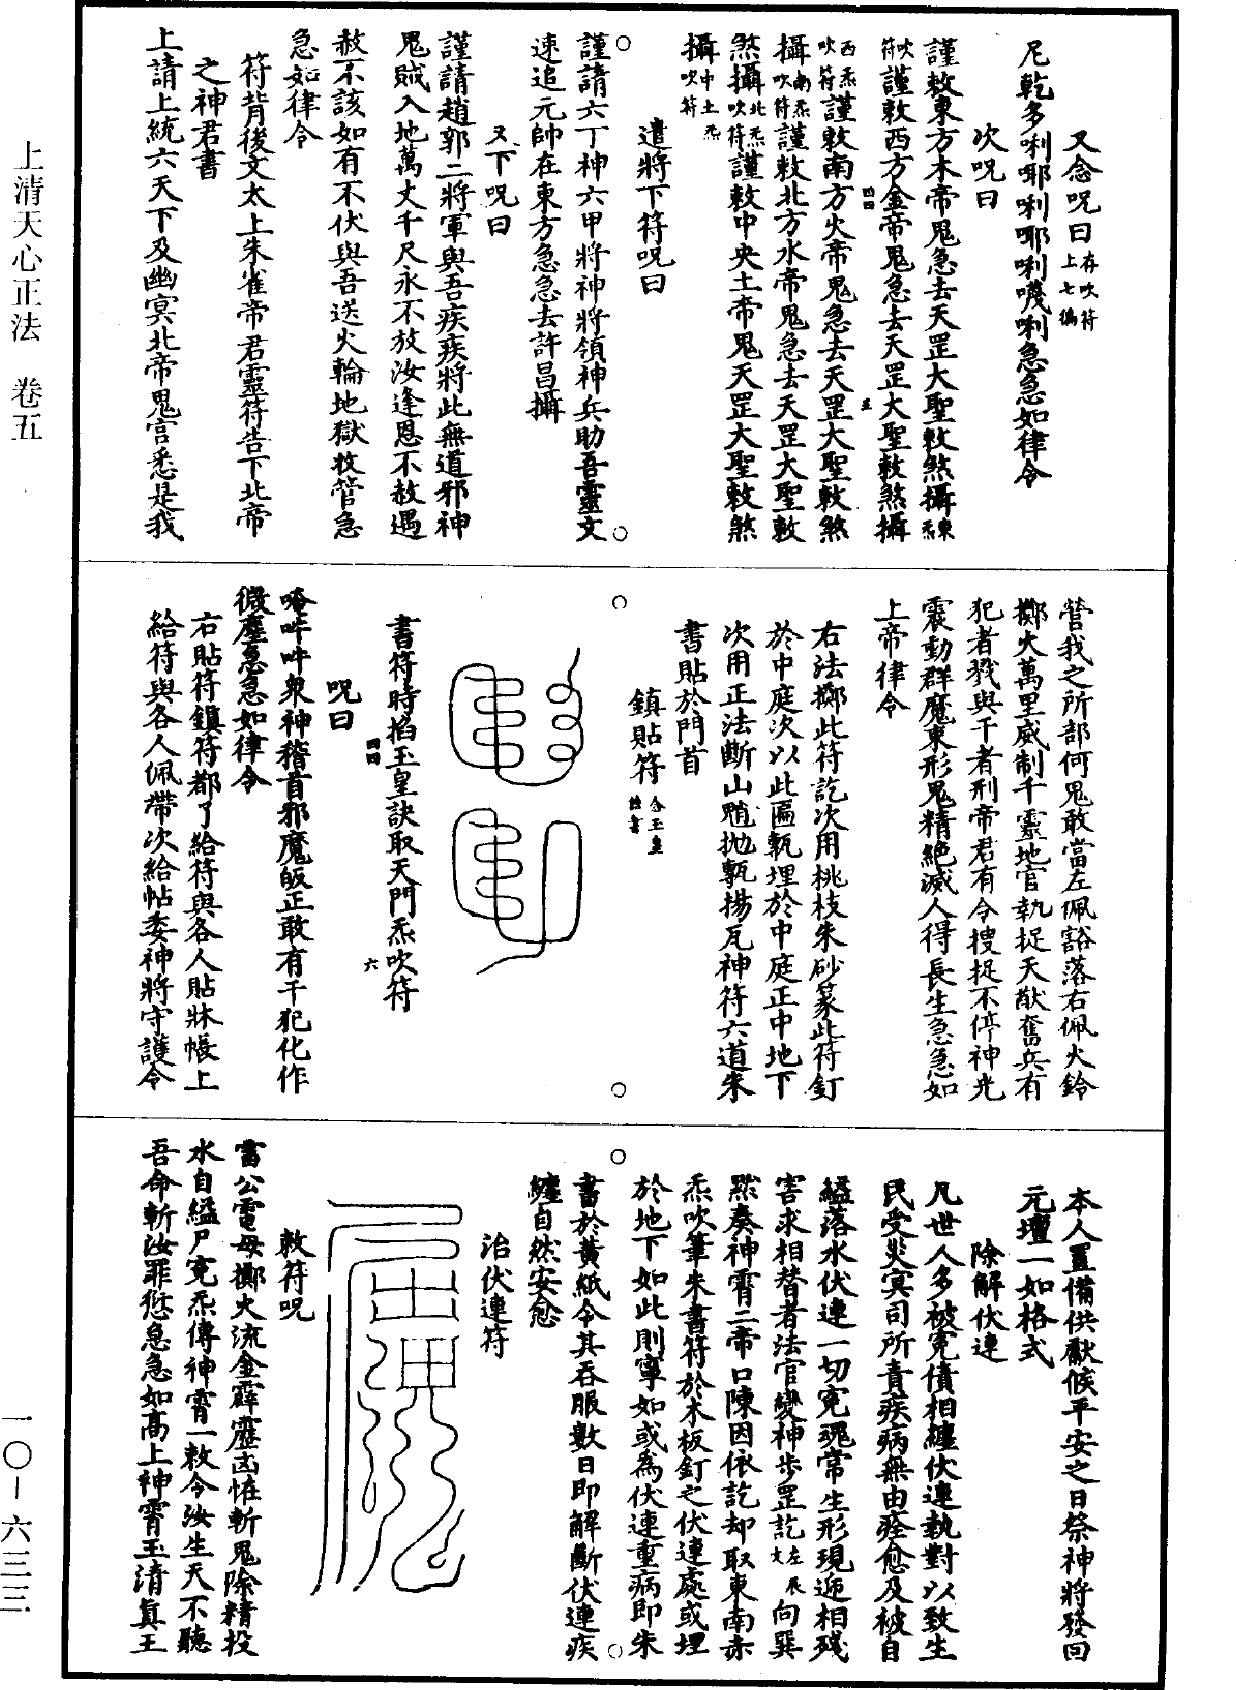 又念呪曰存吹符上七徧
尼乾多唎唧唎唧唎嘰唎急急如律令
次呪曰
謹敕東方木帝鬼急去天罡大聖敕煞攝東炁
吹符謹敕西方金帝鬼急去天罡大聖敕煞攝
西炁吹符謹敕南方火帝鬼急去天罡大聖敕煞
攝南炁吹符謹敕北方水帝鬼急去天罡大聖敕
煞攝北炁吹符謹敕中央土帝鬼天罡大聖敕煞
攝中土炁吹符
遣將下符呪曰
謹請六丁神六甲將神將領神兵助吾靈文
速追元帥在東方急急去許昌攝
又下呪曰
謹請趙郭二將軍與吾疾疾將此無道邪神
鬼賊入地萬丈千尺永不放汝逢恩不赦遇
赦不該如有不伏與吾送火輪地獄牧管急
急如律令
符背後文太上朱雀帝君靈符告下北帝
之神君書
上請上統六天下及幽冥北帝鬼官悉是我
營我之所部何鬼敢當左佩豁落右佩火鈴
擲火萬里威制千靈地官執捉天猷奮兵有
犯者戮與干者刑帝君有令搜捉不停神光
震動群魔束形鬼精絕滅人得長生急急如
上帝律令
右法擲此符訖次用桃枝朱砂篆此符釘
於中庭次以此匾甎埋於中庭正中地下
次用正法斷山魈拋甎揚瓦神符六道朱
書貼於門首
鎮貼符念玉皇諱書
書符時掐玉皇訣取天門炁吹符
呪曰
唵吽吽衆神稽首邪魔皈正敢有干犯化作
微塵急急如律令
右貼符鎮符都了給符與各人貼牀帳上
給符與各人佩帶次給帖委神將守護令
本人置備供獻候平安之日祭神將發回
元壇一如格式
除解伏連
凡世人多被冤債相纏伏連執對以致生
民受災冥司所責疾病無由痊愈及被自
縊落水伏連一切冤魂常生形現遞相殘
害求相替者法官變神步罡訖左足大向巽
默奏神霄二帝口陳因依訖却取東南赤
炁吹筆朱書符於木板釘之伏連處或埋
於地下如此則寧如或為伏連重病即朱
書於黃紙令其吞服數日即解斷伏連疾
纏自然安愈
治伏連符
敕符呪
雷公電母擲火流金霹靂凶恠斬鬼除精投
水自縊尸寃炁傳神霄一敕令汝生天不聽
吾命斬汝罪愆急急如高上神霄玉清真王
上清天心正法　卷五
一〇－六三三